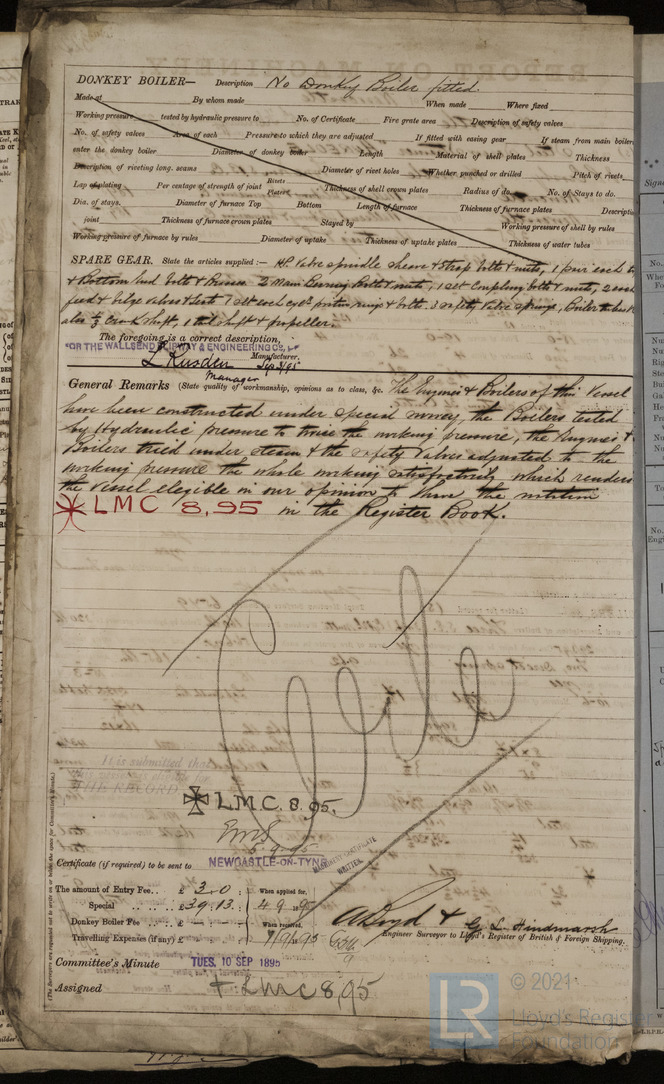 DONKEY BOILER— Description No Donkey Boiler fitted.
Made at By whom made When made Where fixed
Working pressure tested by hydraulic pressure to No. of Certificate Fire grate area Description of safety valves
No. of safety valves Area of each Pressure to which they are adjusted If fitted with easing gear If steam from main boilers
enter the donkey boiler Diameter of donkey boiler Length Material of shell plates Thickness
Description of riveting long. seams Diameter of rivet holes Whether punched or drilled Pitch of rivets
Lap of plating Per centage of strength of joint Rivets Plates Thickness of shell crown plates Radius of do. No. of Stays to do.
Dia. of stays. Diameter of furnace Top Bottom Length of furnace Thickness of furnace plates Descripti
joint Thickness of furnace crown plates Stayed by Working pressure of shell by rules
Working pressure of furnace by rules Diameter of uptake Thickness of uptake plates Thickness of water tubes
SPARE GEAR. State the articles supplied :— HP Valve spindle bolts & nuts, 1 pair each
& Bottom End bolts & Brasses 2 Main Bearing bolts & nuts, 1 set Coupling bolts & nuts, 2 each
feed & bilge valves & seats 1 set each cyl piston rings & bolts. 3 safety valve springs, Boiler tubes
also ⅓ Crank Shaft, 1 tail shaft & propeller.
The foregoing is a correct description,
FOR THE WALLSEND SLIPWAY & ENGINEERING CO., LD
Manufacturer.
Manager
General Remarks (State quality of workmanship, opinions as to class, &c. The Engines & Boilers of this Vessel
have been constructed under special survey, the Boilers tested
by Hydraulic pressure to twice the working pressure, the Engines &
Boilers tried under steam & the safety valves adjusted to the
working pressure the whole working satisfactorily which renders
the Vessel elegible in our opinion to have the notation
LMC 8,95 in the Register Book.
It is submitted that
this vessel is eligible for
THE RECORD
L.M.C. 8.95.
5.9.95
Certificate (if required) to be sent to NEWCASTLE-ON-TYNE
MACHINERY CERTIFICATE
WRITTEN.
The amount of Entry Fee.. £ 3. 0 : When applied for,
Special £ 39. 13. : 4.9.1895
Donkey Boiler Fee £ When received,
Travelling Expenses (if any) £ 7/9/1895
& G. L. Hindmarsh
Engineer Surveyor to Lloyd's Register of British & Foreign Shipping.
Committee's Minute TUES. 10 SEP 1895
Assigned + LMC 8,95
© 2021
LR Lloyd's Register
Foundation